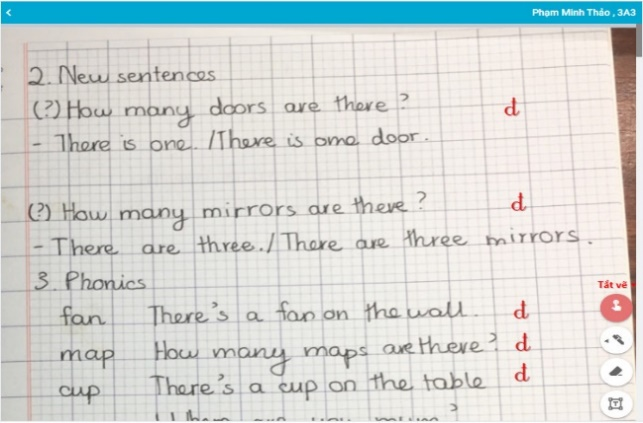 Phạm Minh Thảo , 3A3
2. New sentences
(?) How many doors are there? d
- There is one. / There is ome door.
(?) How many mirrors are there? d
- There are three. / There are three mirrors.
3. Phonics
fan There's a fan on the wall. d
Tắt vẽ
map How many maps are there? d
cup There's a cup on the table d